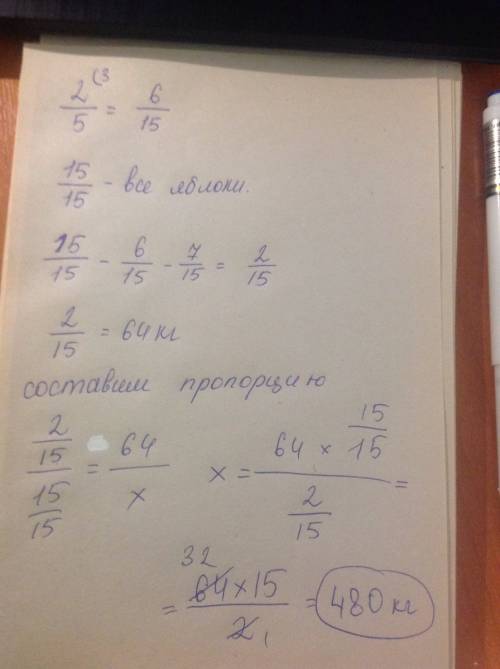 2/5 (3 = 6/15
15/15 - все яблоки.
15/15 - 6/15 - 7/15 = 2/15
2/15 = 64 кг
составим пропорцию
2/15 / 15/15 = 64/x x = 64 × 15/15 / 2/15 =
32
= 64×15/2 1 = 480 кг